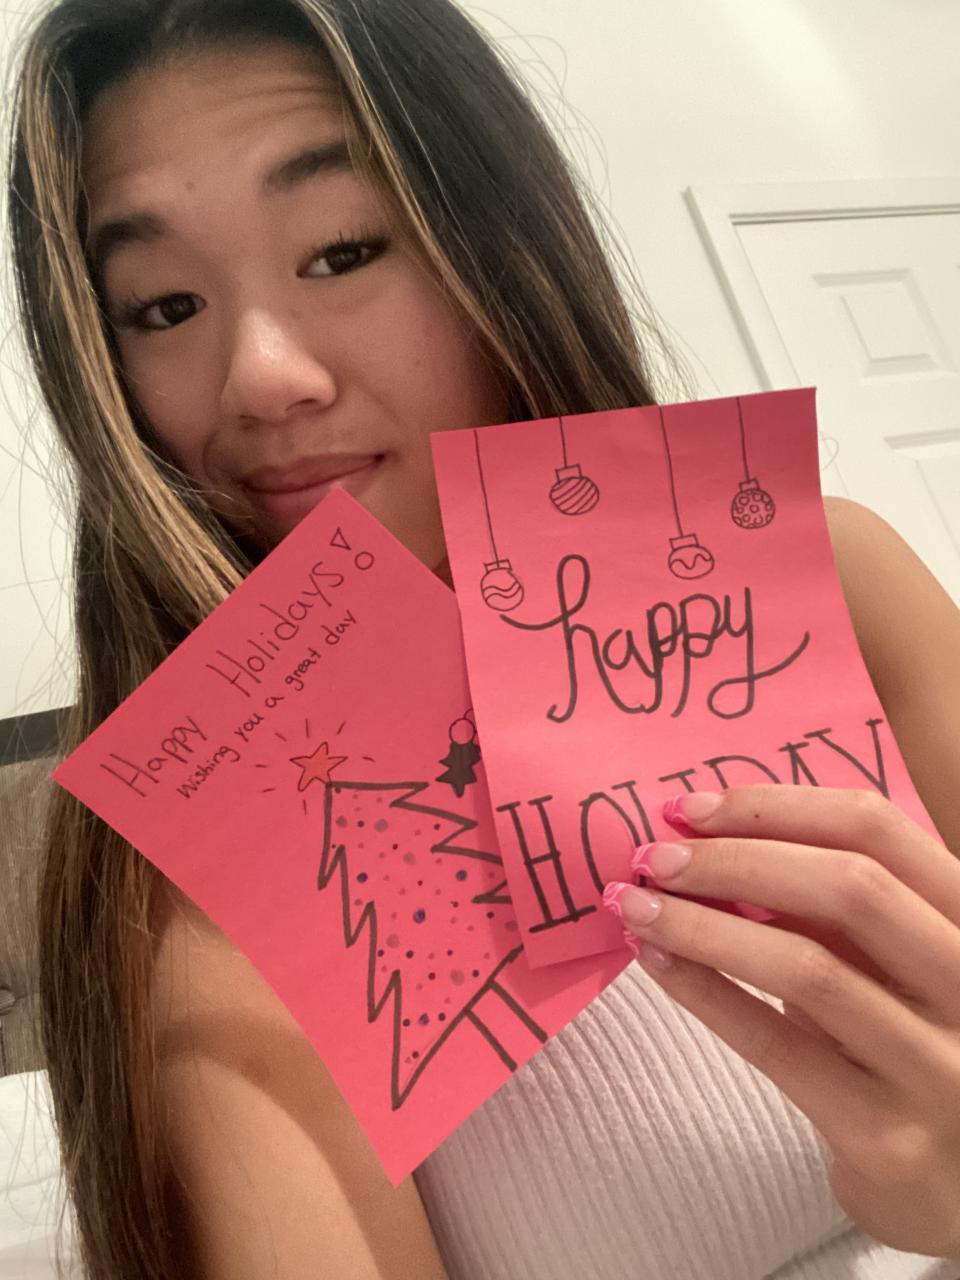 Happy Holidays!
Wishing you a great day
happy
HOLIDAY